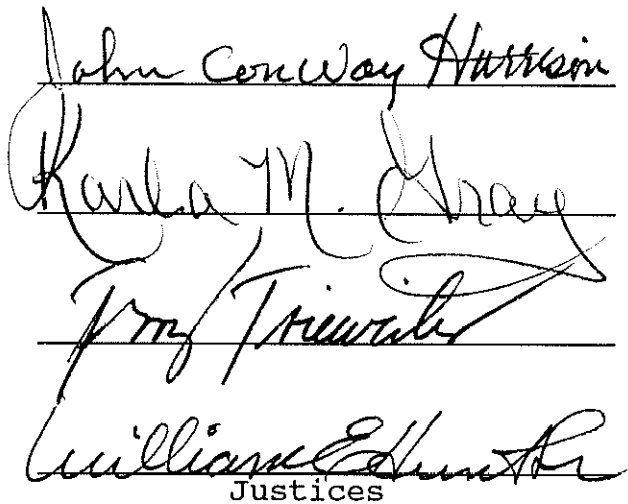 John Conway Harrison
Karla M. Gray
Terry Trieweiler
William E Hunt Sr
Justices